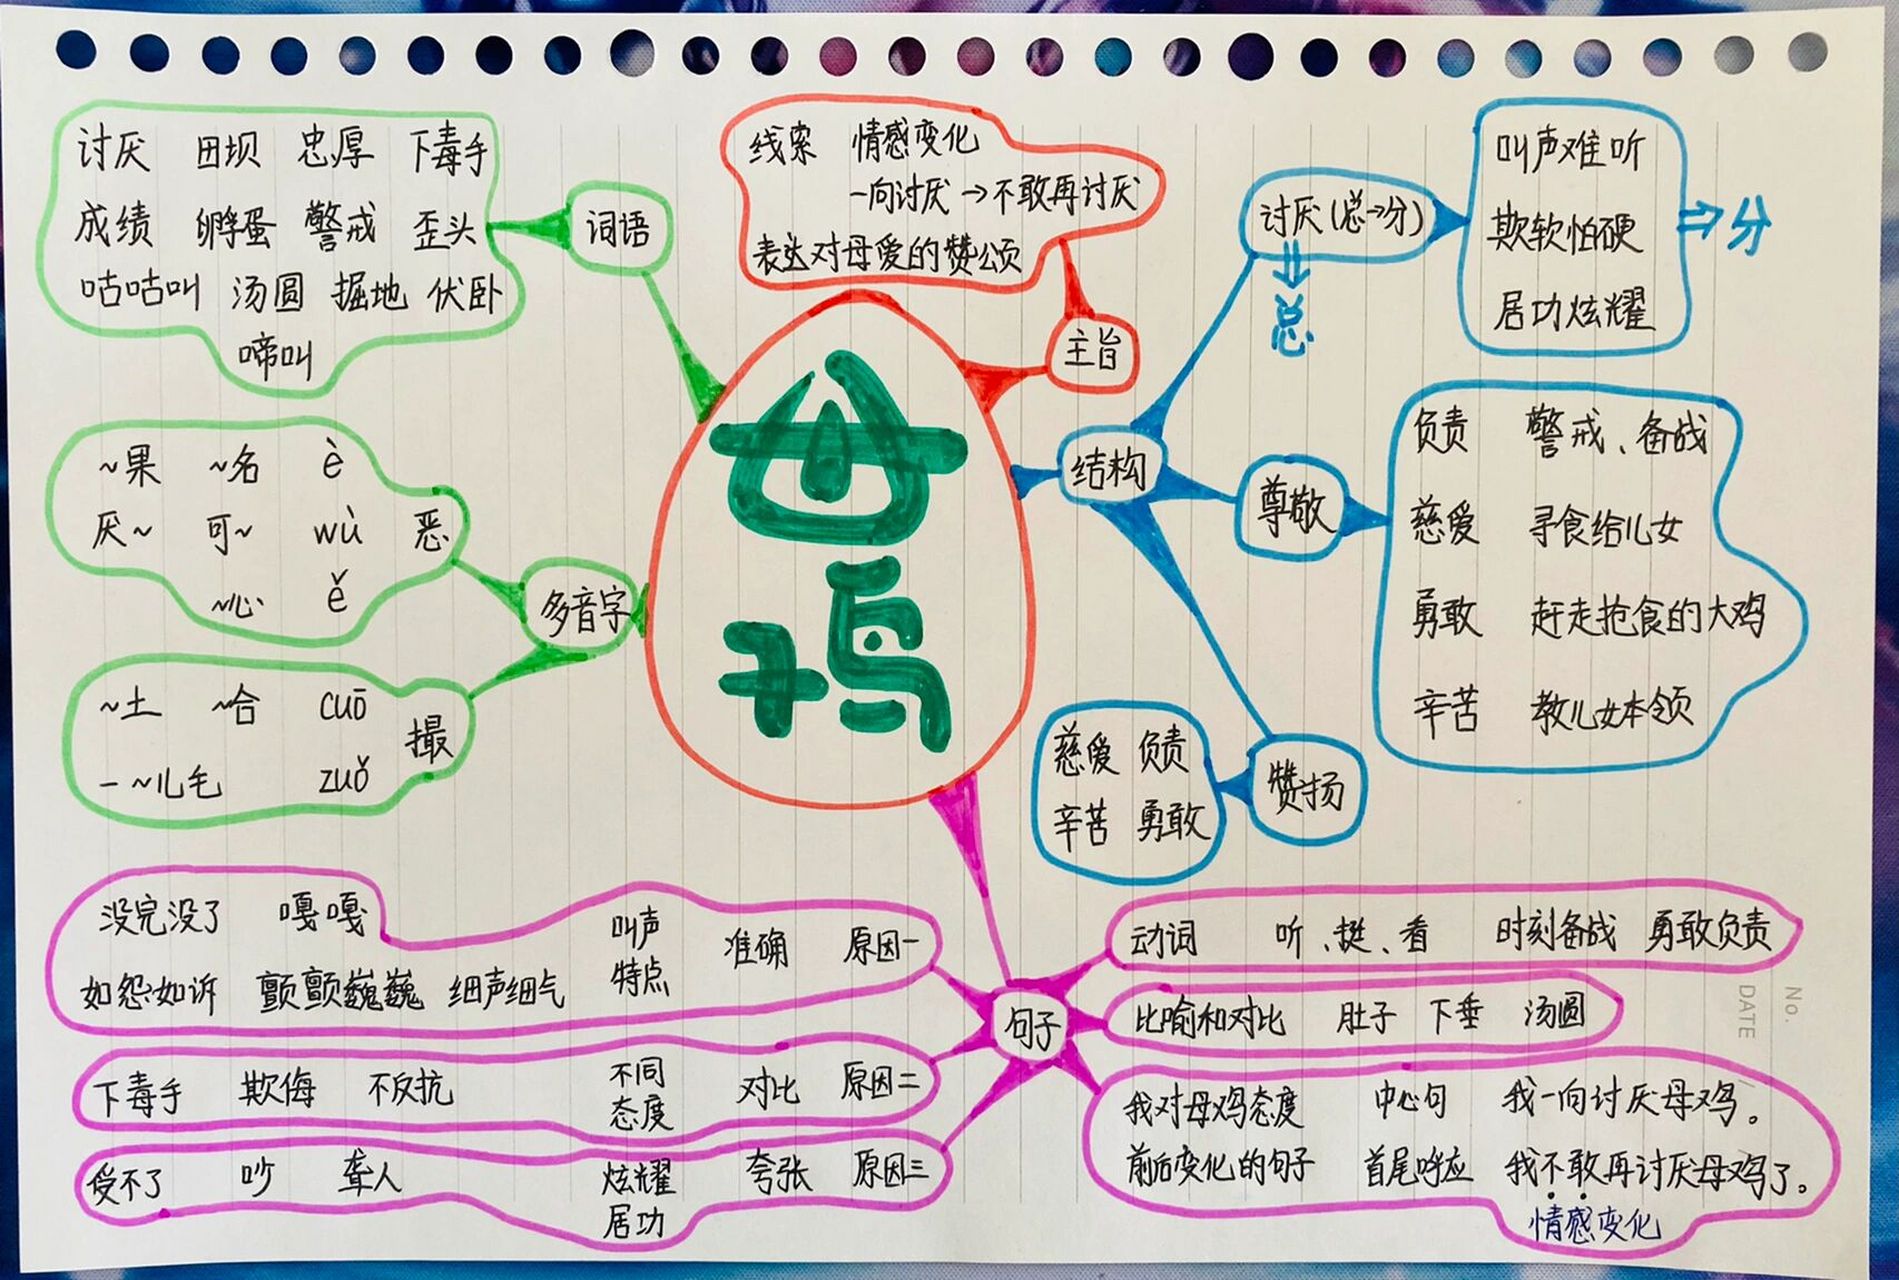 母鸡
词语
讨厌 田坝 忠厚 下毒手
成绩 孵蛋 警戒 歪头
咕咕叫 汤圆 掘地 伏卧
啼叫
多音字
恶
~果 ~名 è
厌~ 可~ wù
~心 ě
撮
~土 ~合 cuō
一~儿毛 zuǒ
主旨
线索 情感变化
一向讨厌→不敢再讨厌
表达对母爱的赞颂
结构
讨厌(总→分)
⇓
总
叫声难听
欺软怕硬
居功炫耀
⇒分
尊敬
负责 警戒、备战
慈爱 寻食给儿女
勇敢 赶走抢食的大鸡
辛苦 教儿女本领
赞扬
慈爱 负责
辛苦 勇敢
句子
没完没了 嘎嘎
如怨如诉 颤颤巍巍 细声细气
叫声
特点
准确 原因一
下毒手 欺侮 不反抗
不同
态度
对比 原因二
受不了 吵 聋人
炫耀
居功
夸张 原因三
动词 听、挺、看 时刻备战 勇敢负责
比喻和对比 肚子 下垂 汤圆
我对母鸡态度 中心句 我一向讨厌母鸡。
前后变化的句子 首尾呼应 我不敢再讨厌母鸡了。
情感变化
No.
DATE / /